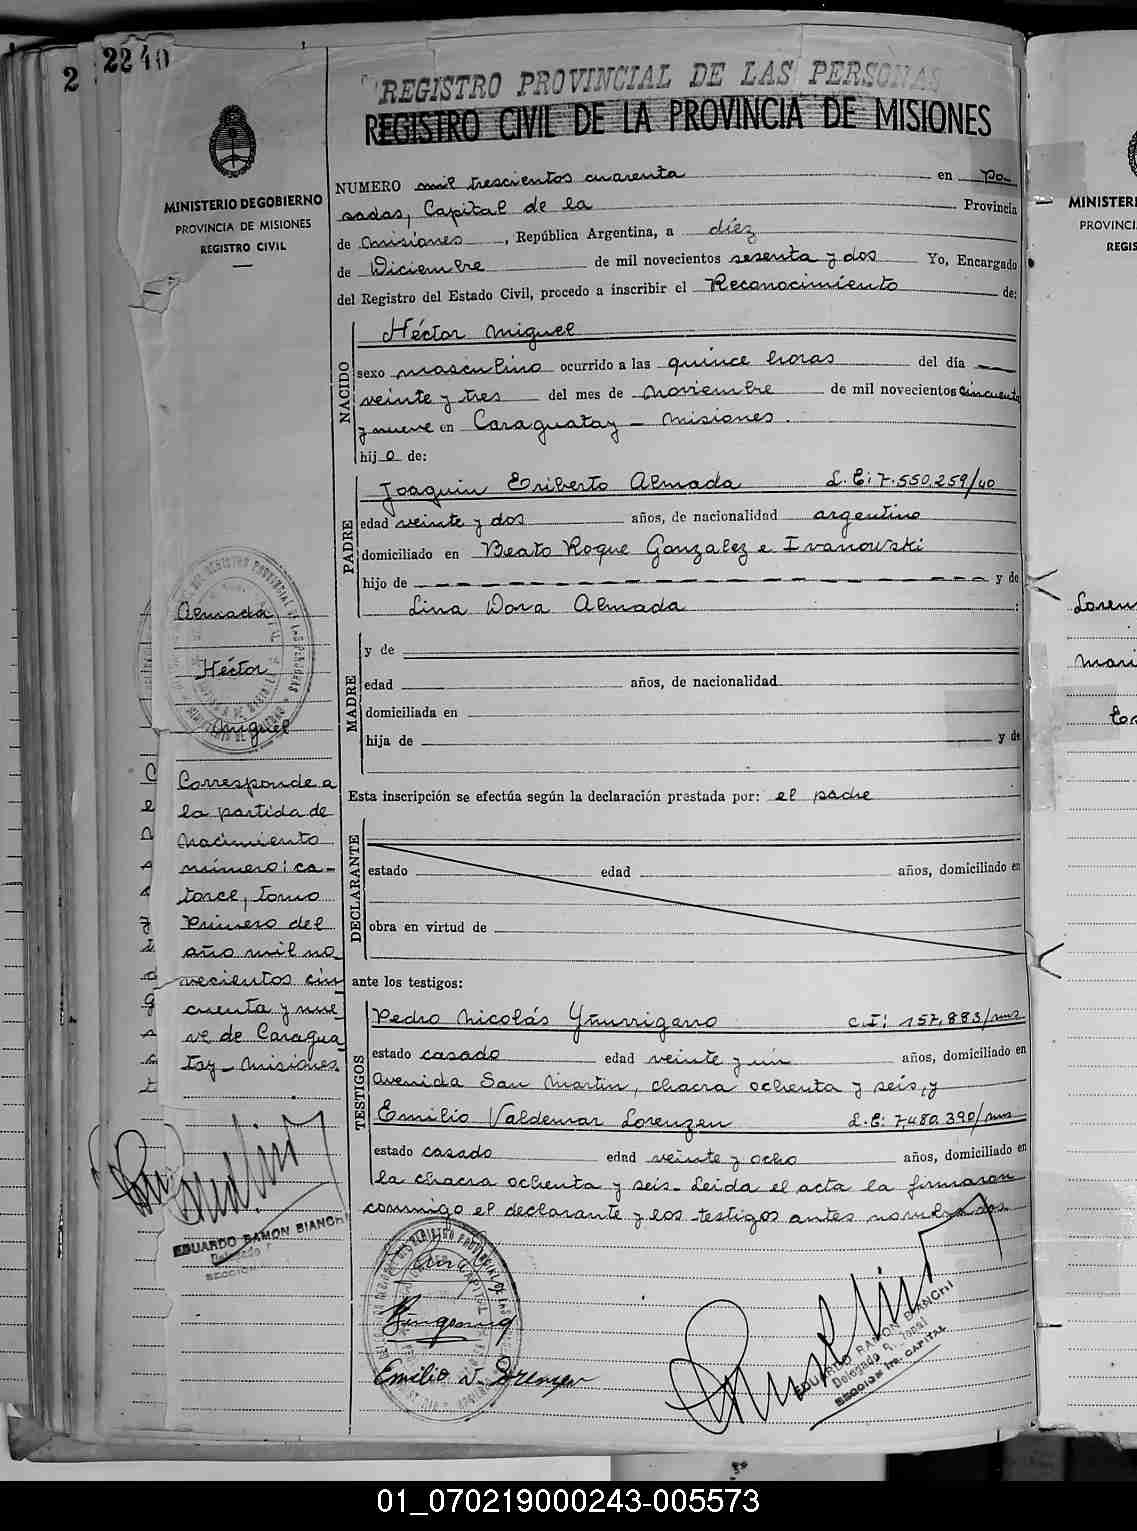 2
2240
REGISTRO PROVINCIAL DE LAS PERSONAS
REGISTRO CIVIL DE LA PROVINCIA DE MISIONES
MINISTERIO DE GOBIERNO
PROVINCIA DE MISIONES
REGISTRO CIVIL
NUMERO mil trescientos cuarenta en Po-
sadas, Capital de la Provincia
de Misiones, República Argentina, a diéz
de Diciembre de mil novecientos sesenta y dos Yo, Encargado
del Registro del Estado Civil, procedo a inscribir el Reconocimiento de:
NACIDO
Héctor Miguel
sexo masculino ocurrido a las quince horas del día
veinte y tres del mes de noviembre de mil novecientos cincuenta
y nueve en Caraguatay - Misiones.
hijo de:
PADRE
Joaquin Eriberto Almada L.E: 7.550.259/40
edad veinte y dos años, de nacionalidad argentino
domiciliado en Beato Roque Gonzalez e Ivanowski
hijo de y de
Lina Dora Almada
MADRE
y de
edad años, de nacionalidad
domiciliada en
hija de y de
Esta inscripción se efectúa según la declaración prestada por: el padre
DECLARANTE
estado edad años, domiciliado en
obra en virtud de
ante los testigos:
TESTIGOS
Pedro Nicolás Yñurrigarro C.I: 157.883/mns
estado casado edad veinte y un años, domiciliado en
Avenida San Martin, chacra ochenta y seis, y
Emilio Valdemar Lorenzen L.E: 7.480.390/mns
estado casado edad veinte y ocho años, domiciliado en
la chacra ochenta y seis. Leida el acta la firmaron
conmigo el declarante y los testigos antes nombrados.
Almada
Héctor
Miguel
Corresponde a
la partida de
nacimiento
número: ca-
torce, tomo
Primero del
año mil no-
vecientos cin
cuenta y nue-
ve de Caragua
tay - Misiones
EDUARDO RAMON BIANCHI
Emilio V. Lorenzen
EDUARDO RAMON BIANCHI
SECCION 1ra. CAPITAL
MINISTERI
PROVINCI
REGIS
Loren
Mari
01_070219000243-005573